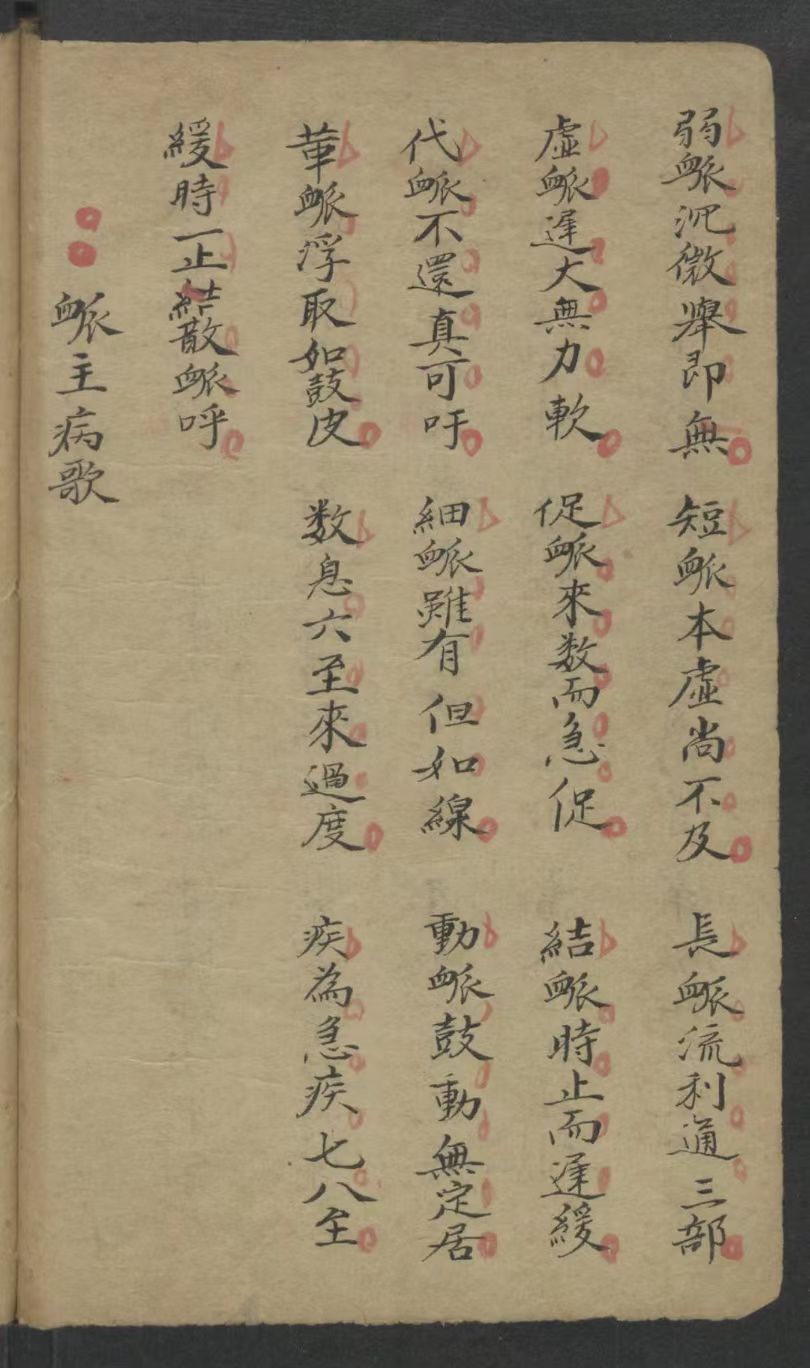 弱脈沉微舉即無　短脈本虛尚不及　長脈流利通三部
虛脈遲大無力軟　促脈來数而急促　結脈時止而遲緩
代脈不還真可吁　細脈雖有但如線　動脈鼓動無定居
革脈浮取如鼓皮　数息六至來過度　疾為急疾七八至
緩時一止結散脈呼
脈主病歌